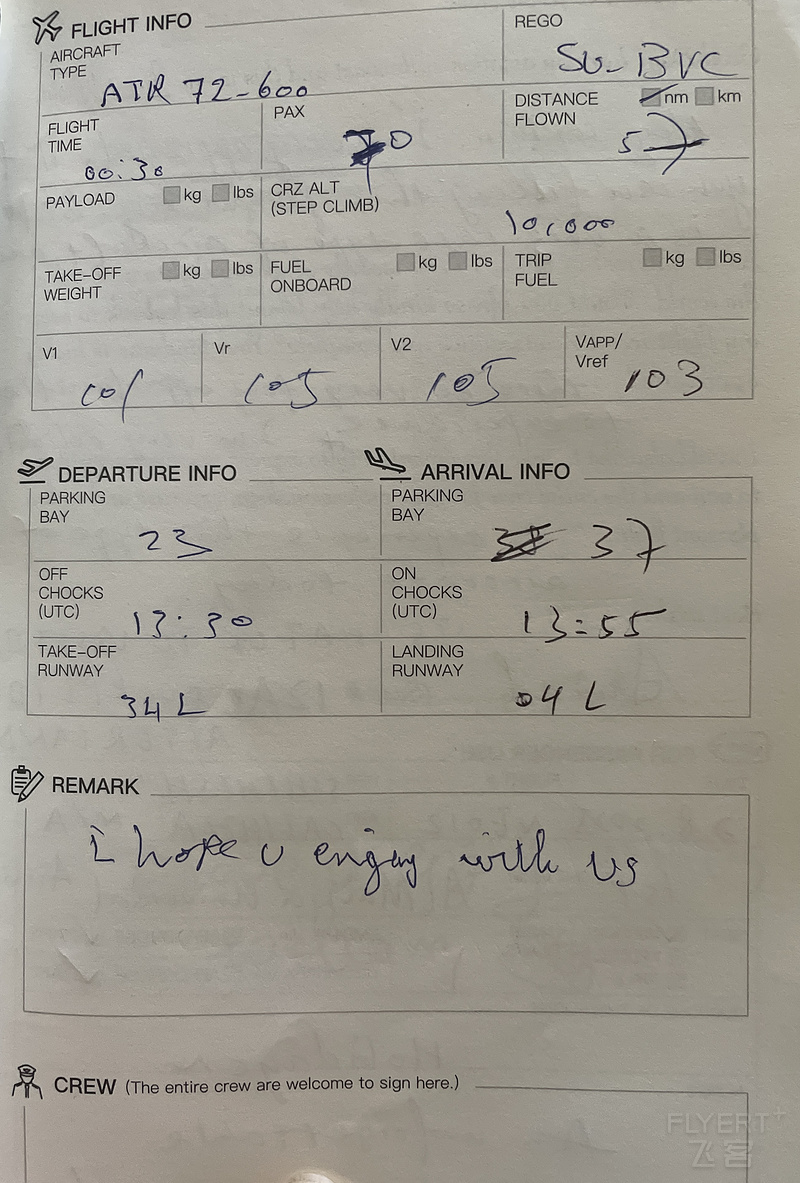 FLIGHT INFO
AIRCRAFT TYPE
ATR 72-600
REGO
SU-BVC
FLIGHT TIME
00:30
PAX
70
DISTANCE FLOWN
nm km
57
PAYLOAD kg lbs
CRZ ALT (STEP CLIMB)
10,000
TAKE-OFF WEIGHT kg lbs
FUEL ONBOARD kg lbs
TRIP FUEL kg lbs
V1
101
Vr
105
V2
105
VAPP/Vref
103
DEPARTURE INFO
ARRIVAL INFO
PARKING BAY
23
PARKING BAY
37
OFF CHOCKS (UTC)
13:30
ON CHOCKS (UTC)
13:55
TAKE-OFF RUNWAY
34 L
LANDING RUNWAY
04 L
REMARK
i hope u engay with us
CREW (The entire crew are welcome to sign here.)
FLYERT+
飞客